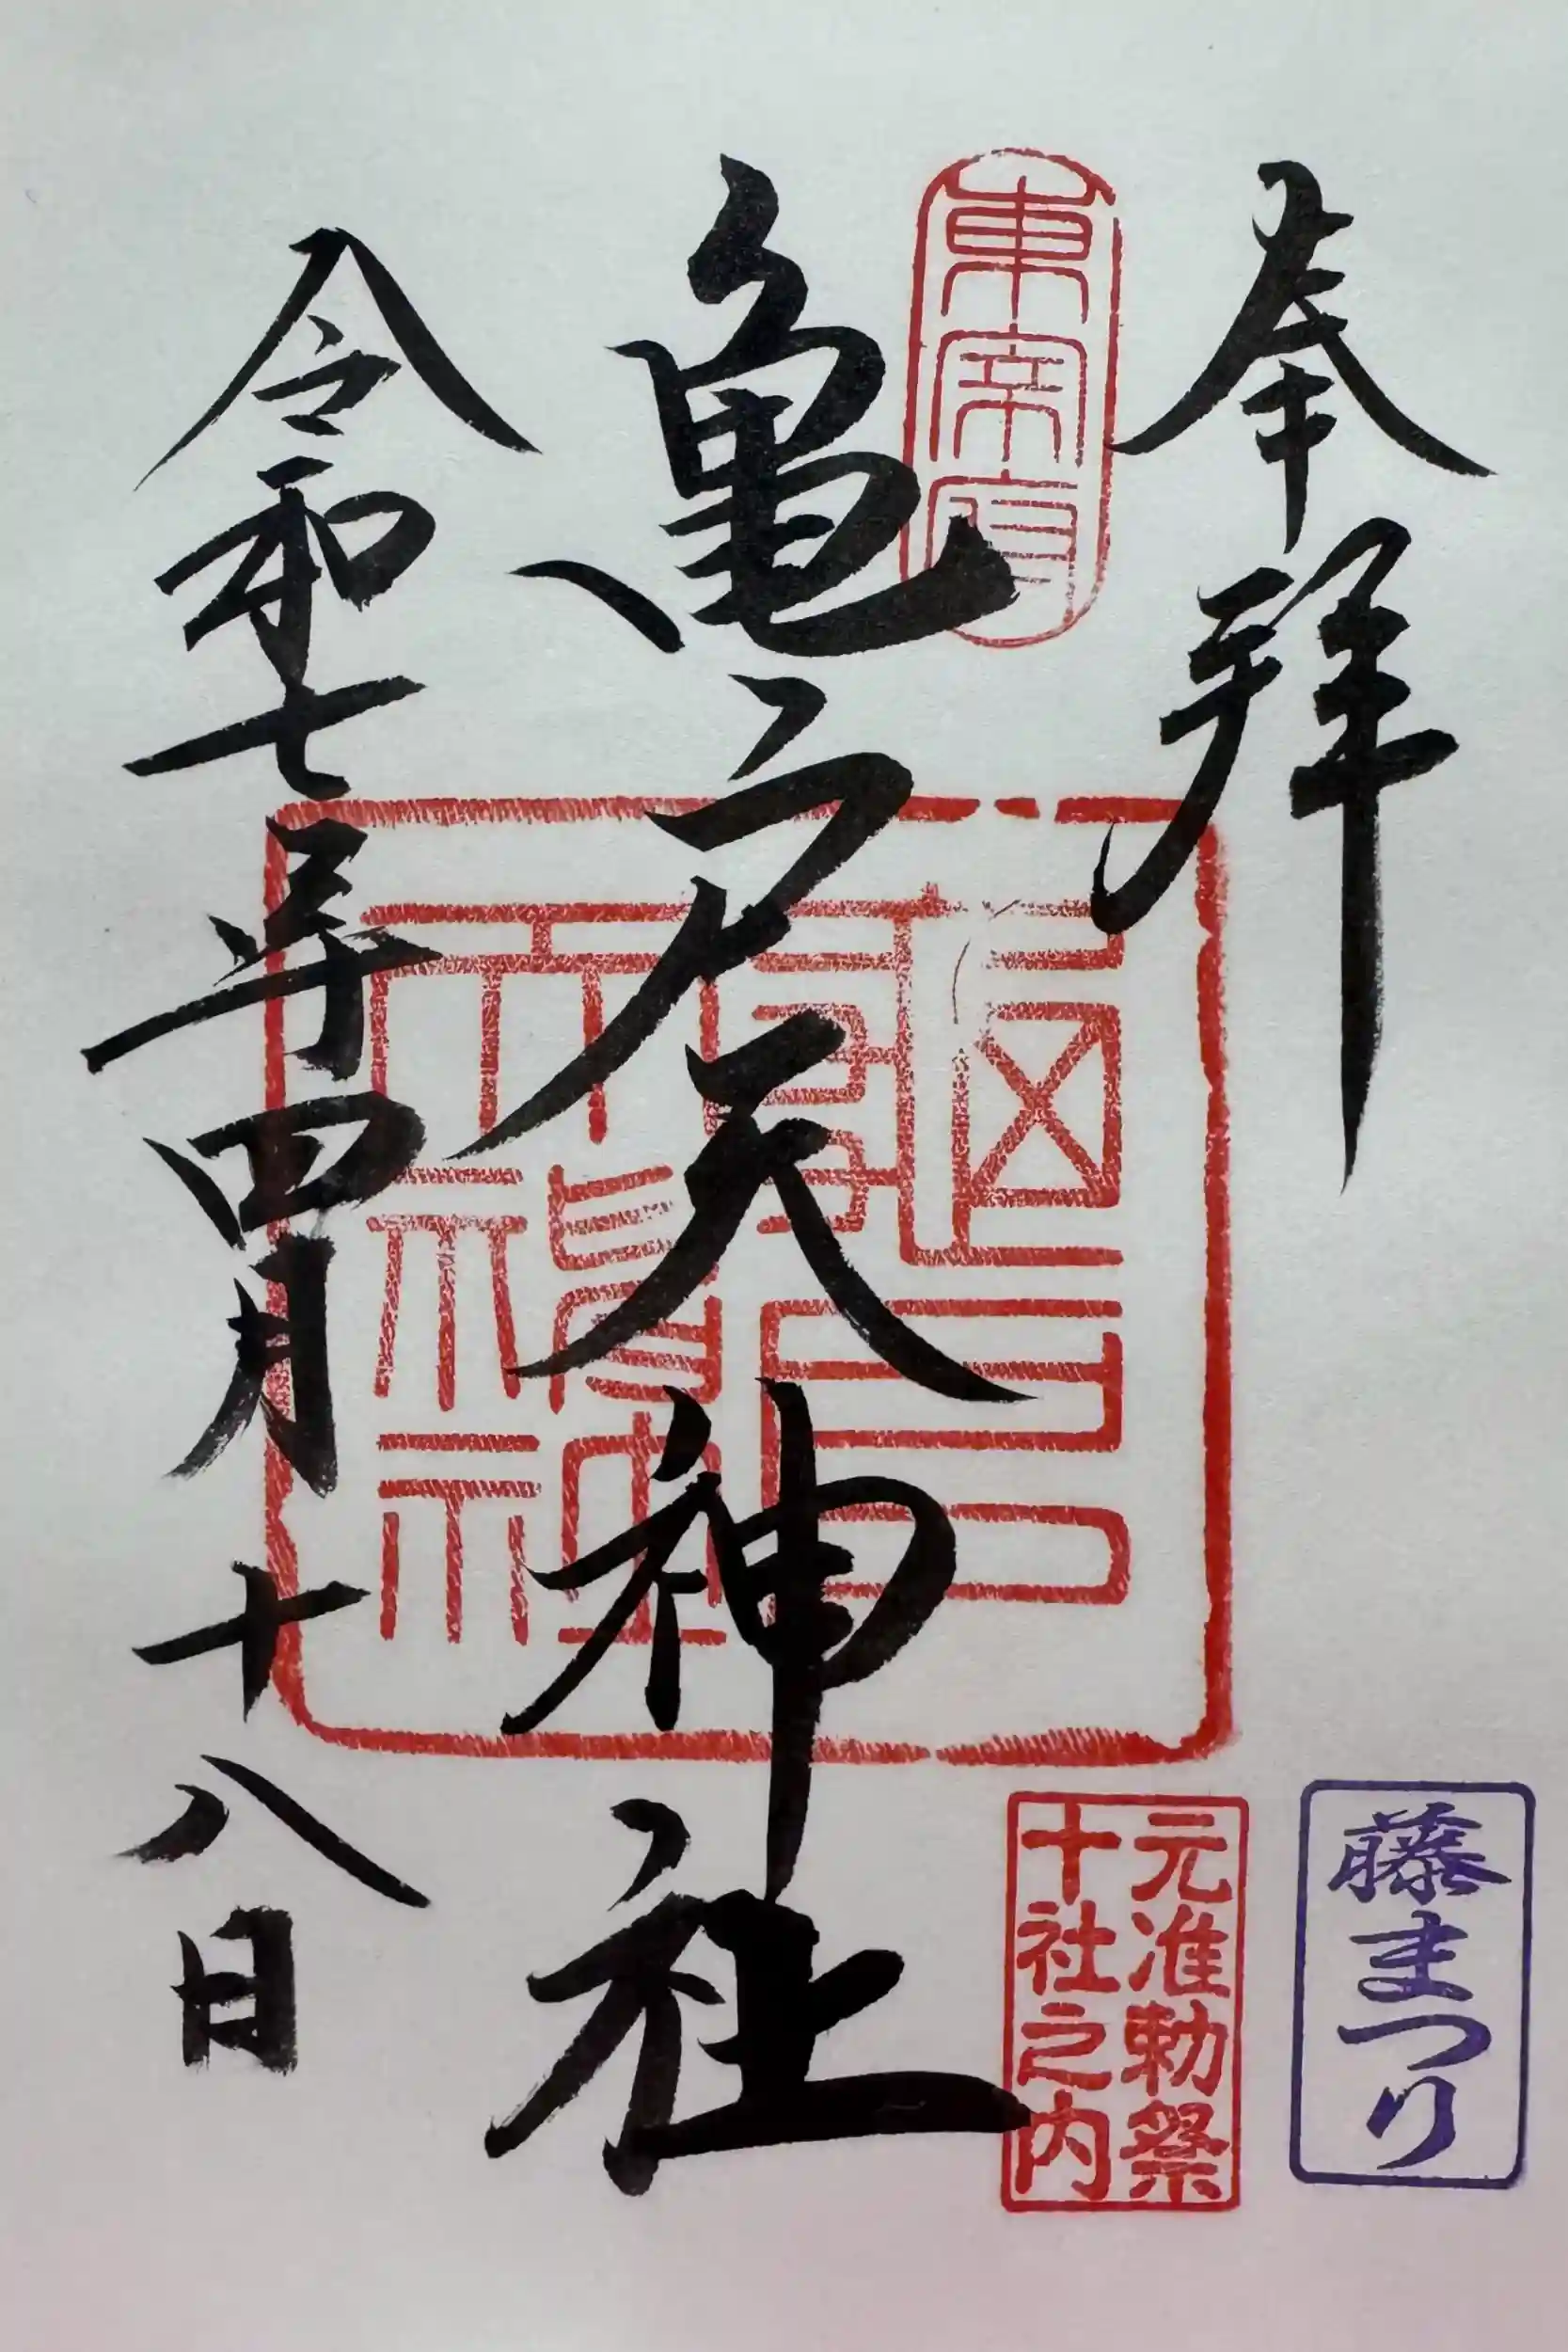 奉拝
東宰府
亀戸天神社
令和七年四月十八日
元准勅祭
十社之内
藤まつり